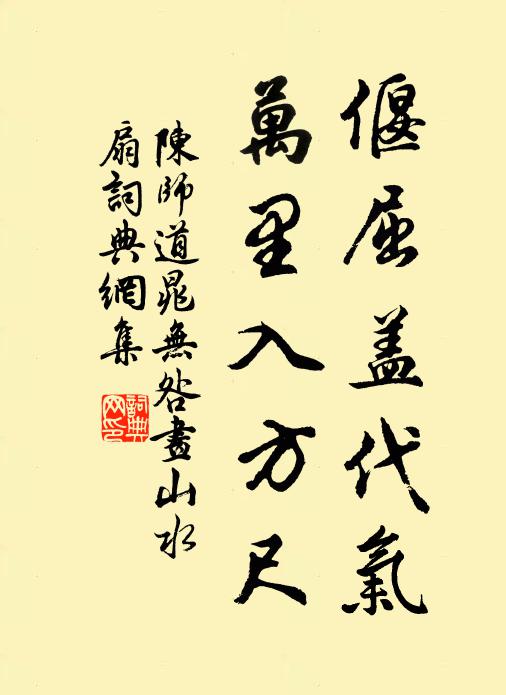 偃屈盖代氣
萬里入方尺
陳師道晁無咎畫山水
扇詞典網集
詞典网印